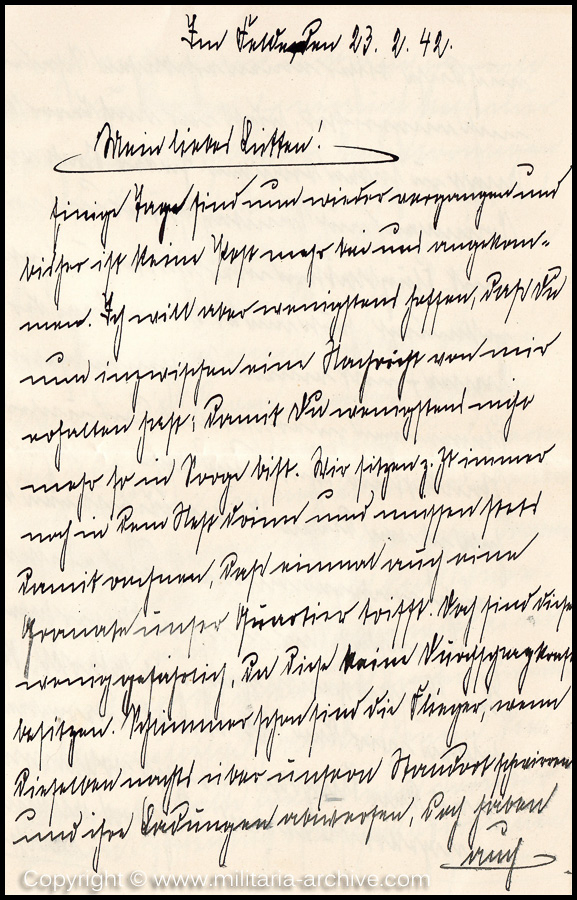 Im Felde, den 23. 2. 42.
Mein liebes Lutten!
Einige Tage sind nun wieder vergangen und
bisher ist keine Post mehr bei uns angekom-
men. Ich will aber wenigstens hoffen, daß Du
nun inzwischen eine Nachricht von mir
erhalten hast; damit Du wenigstens nicht
mehr so in Sorge bist. Wir sitzen z. Zt immer
noch in dem Nest drinn und müssen stets
damit rechnen, daß einmal auch eine
Granate unser Quartier trifft. Doch sind diese
wenig gefährlich, da diese keine Durchschlagskraft
besitzen. Schlimmer schon sind die Flieger, wenn
dieselben nachts über unsern Standort schwirren
und ihre Ladungen abwerfen, doch haben
auch
Copyright © www.militaria-archive.com